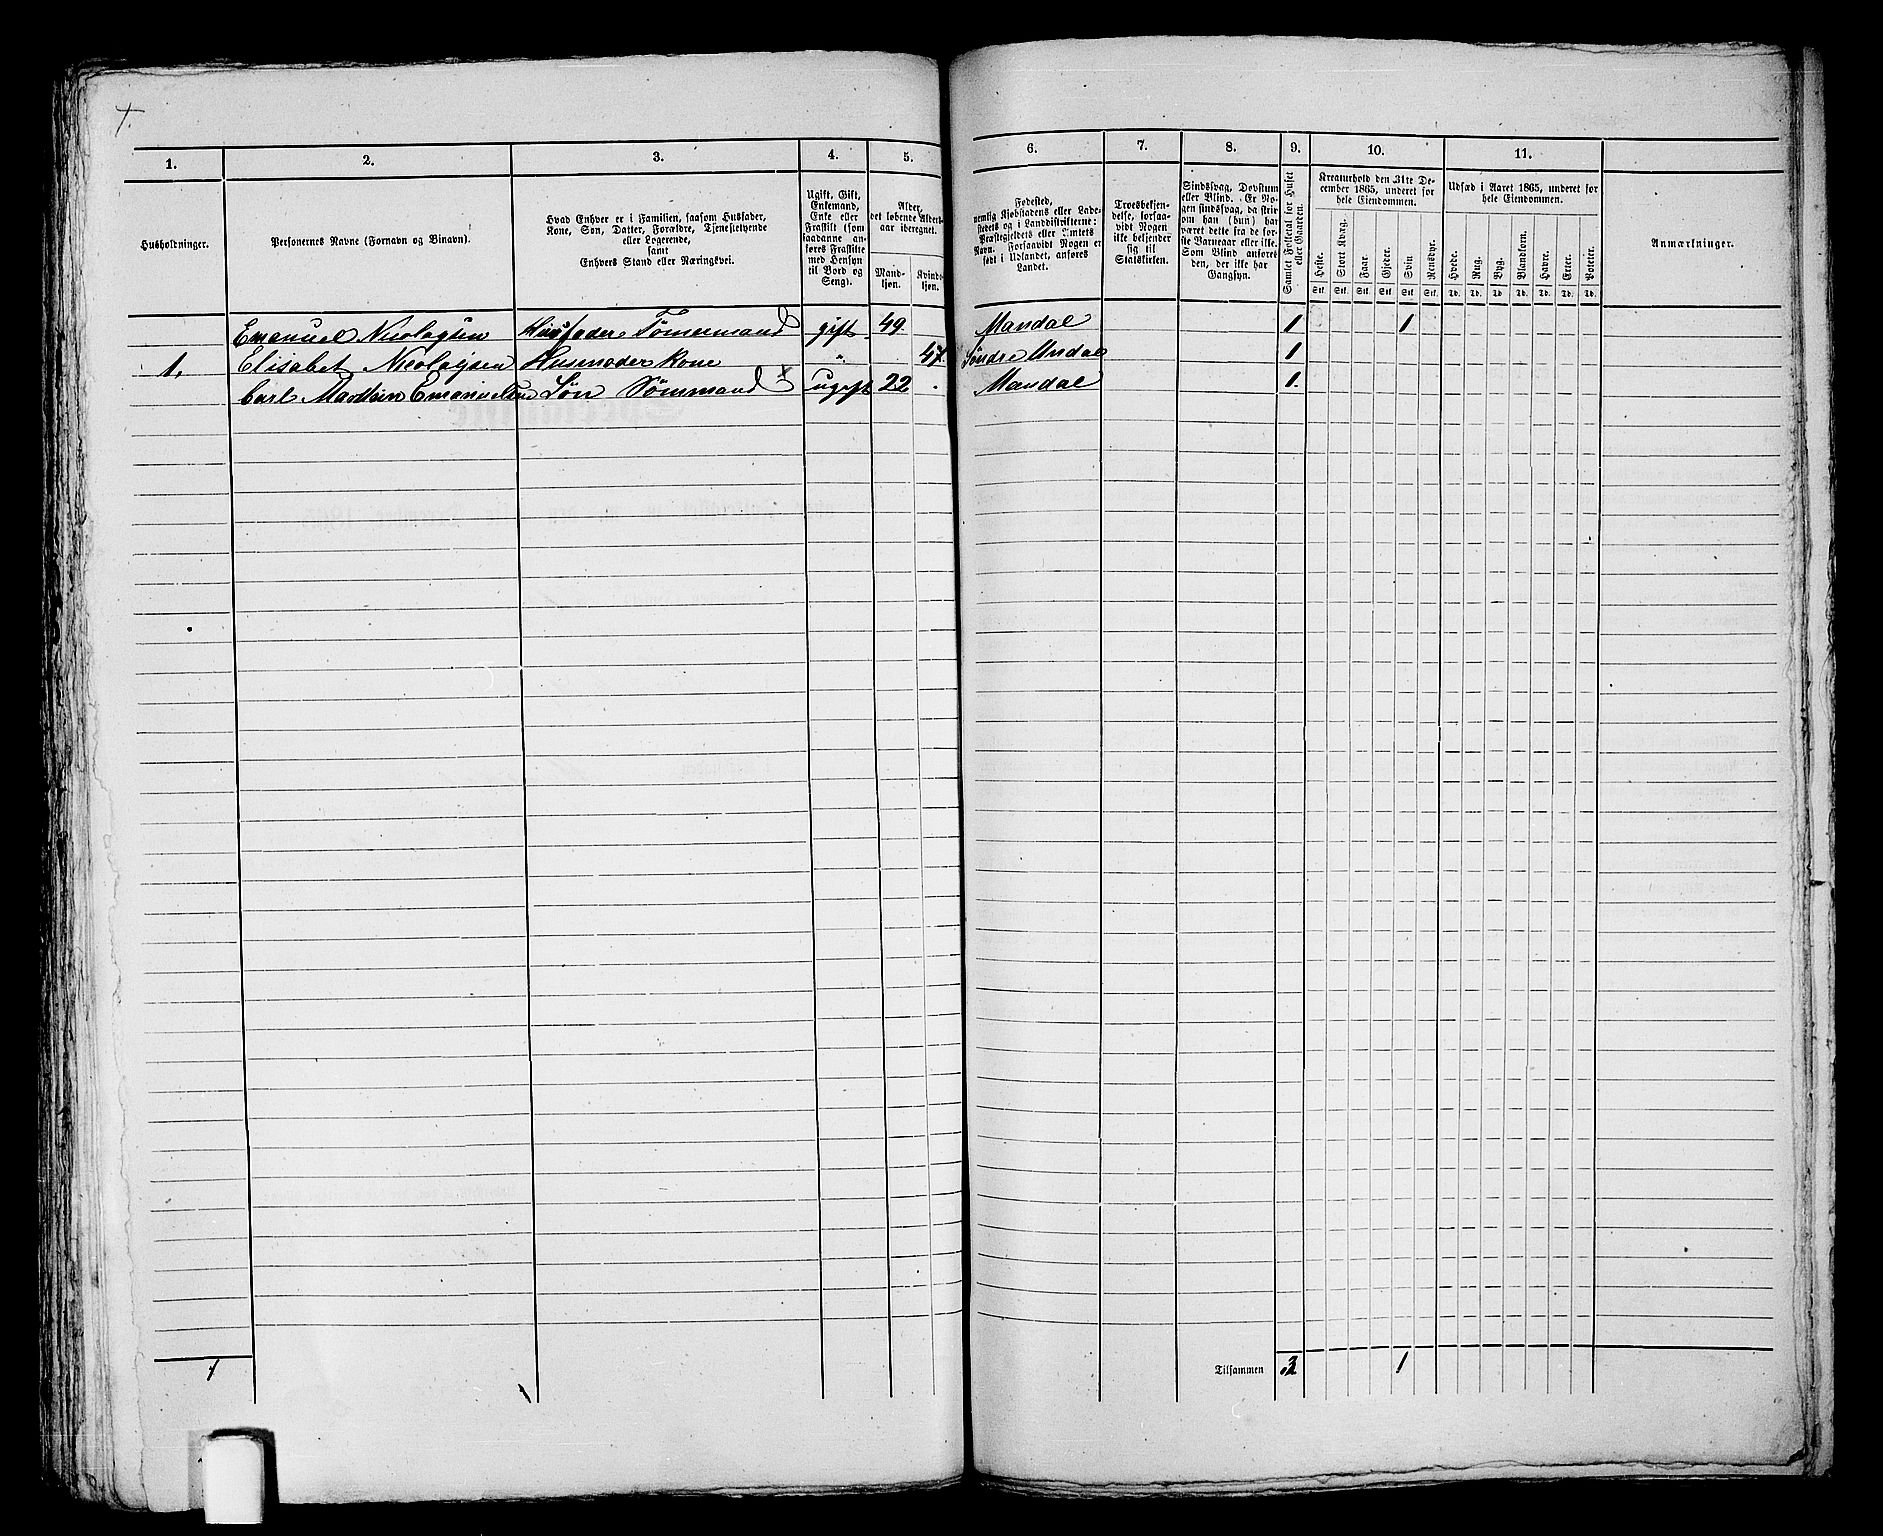 1.
2.
3.
4.
5.
6.
7.
8.
9.
10.
11.
Husholdninger.
Personernes Navne (Fornavn og Binavn).
Hvad Enhver er i Familien, saasom Husfader,
Kone, Søn, Datter, Forældre, Tjenestetyende
eller Logerende,
samt
Enhvers Stand eller Næringsvei.
Ugift, Gift,
Enkemand,
Enke eller
Fraskilt (som
saadanne an-
føres Fraskilte
med Hensyn
til Bord og
Seng).
Alder,
det løbende Alders-
aar iberegnet.
Mand-
kjøn.
Kvinde-
kjøn.
Fødested,
nemlig Kjøbstadens eller Lade-
stedets og i Landdistrikterne:
Præstegjeldets eller Amtets
Navn. Forsaavidt Nogen er
født i Udlandet, anføres
Landet.
Troesbekjen-
delse, forsaa-
vidt Nogen
ikke bekjender
sig til
Statskirken.
Sindssvag, Døvstum
eller Blind. Er No-
gen sindssvag, da skriv
om han (hun) har
været dette fra de før-
ste Barneaar eller ikke.
Som Blind anføres
den, der ikke har
Gangsyn.
Samlet Folketal for Huset
eller Gaarden.
Kreaturhold den 31te De-
cember 1865, underet for
hele Eiendommen.
Heste. Stort Kvæg. Faar. Gjeder. Svin. Rensdyr.
Stk. Stk. Stk. Stk. Stk. Stk.
Udsæd i Aaret 1865, underet for
hele Eiendommen.
Hvede. Rug. Byg. Blandkorn. Havre. Erter. Poteter.
Td. Td. Td. Td. Td. Td. Td.
Anmærkninger.
Emanuel Nicolaysen Husfader Tømermand gift 49. Mandal 1 1
1, Elisabet Nicolaysen Husmoder kone " 47. Søndre Undal 1
Carl Mathin Emanuelsen Søn Sømmand x ugift 22 . Mandal 1.
1 Tilsammen 3 1